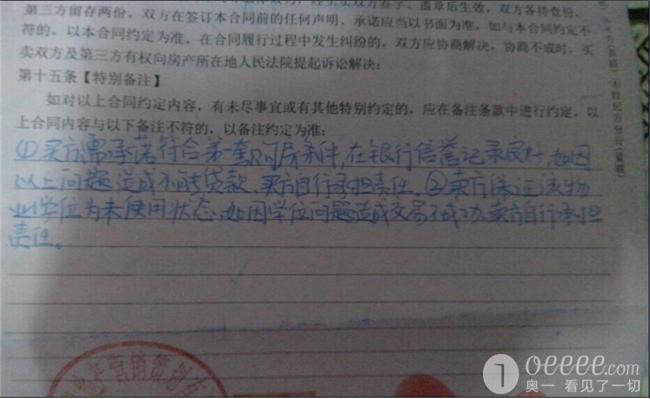 第三方留存两份。双方在签订本合同前的任何声明、承诺应当以书面为准,如与本合同约定不
符的,以本合同约定为准。在合同履行过程中发生纠纷的,双方应协商解决,协商不成时,买
卖双方及第三方有权向房产所在地人民法院提起诉讼解决:
第十五条【特别备注】
如对以上合同约定内容,有未尽事宜或有其他特别约定的,应在备注条款中进行约定,以
上合同内容与以下备注不符的,以备注约定为准:
①买方需承诺符合第一套购房条件,在银行信誉记录良好,如因
以上问题造成不能贷款,买方自行承担责任。②卖方保证该物
业学位为未使用状态,如因学位问题造成交易不成功,卖方自行承担
责任。
1oeeee.com
奥一 看见了一切